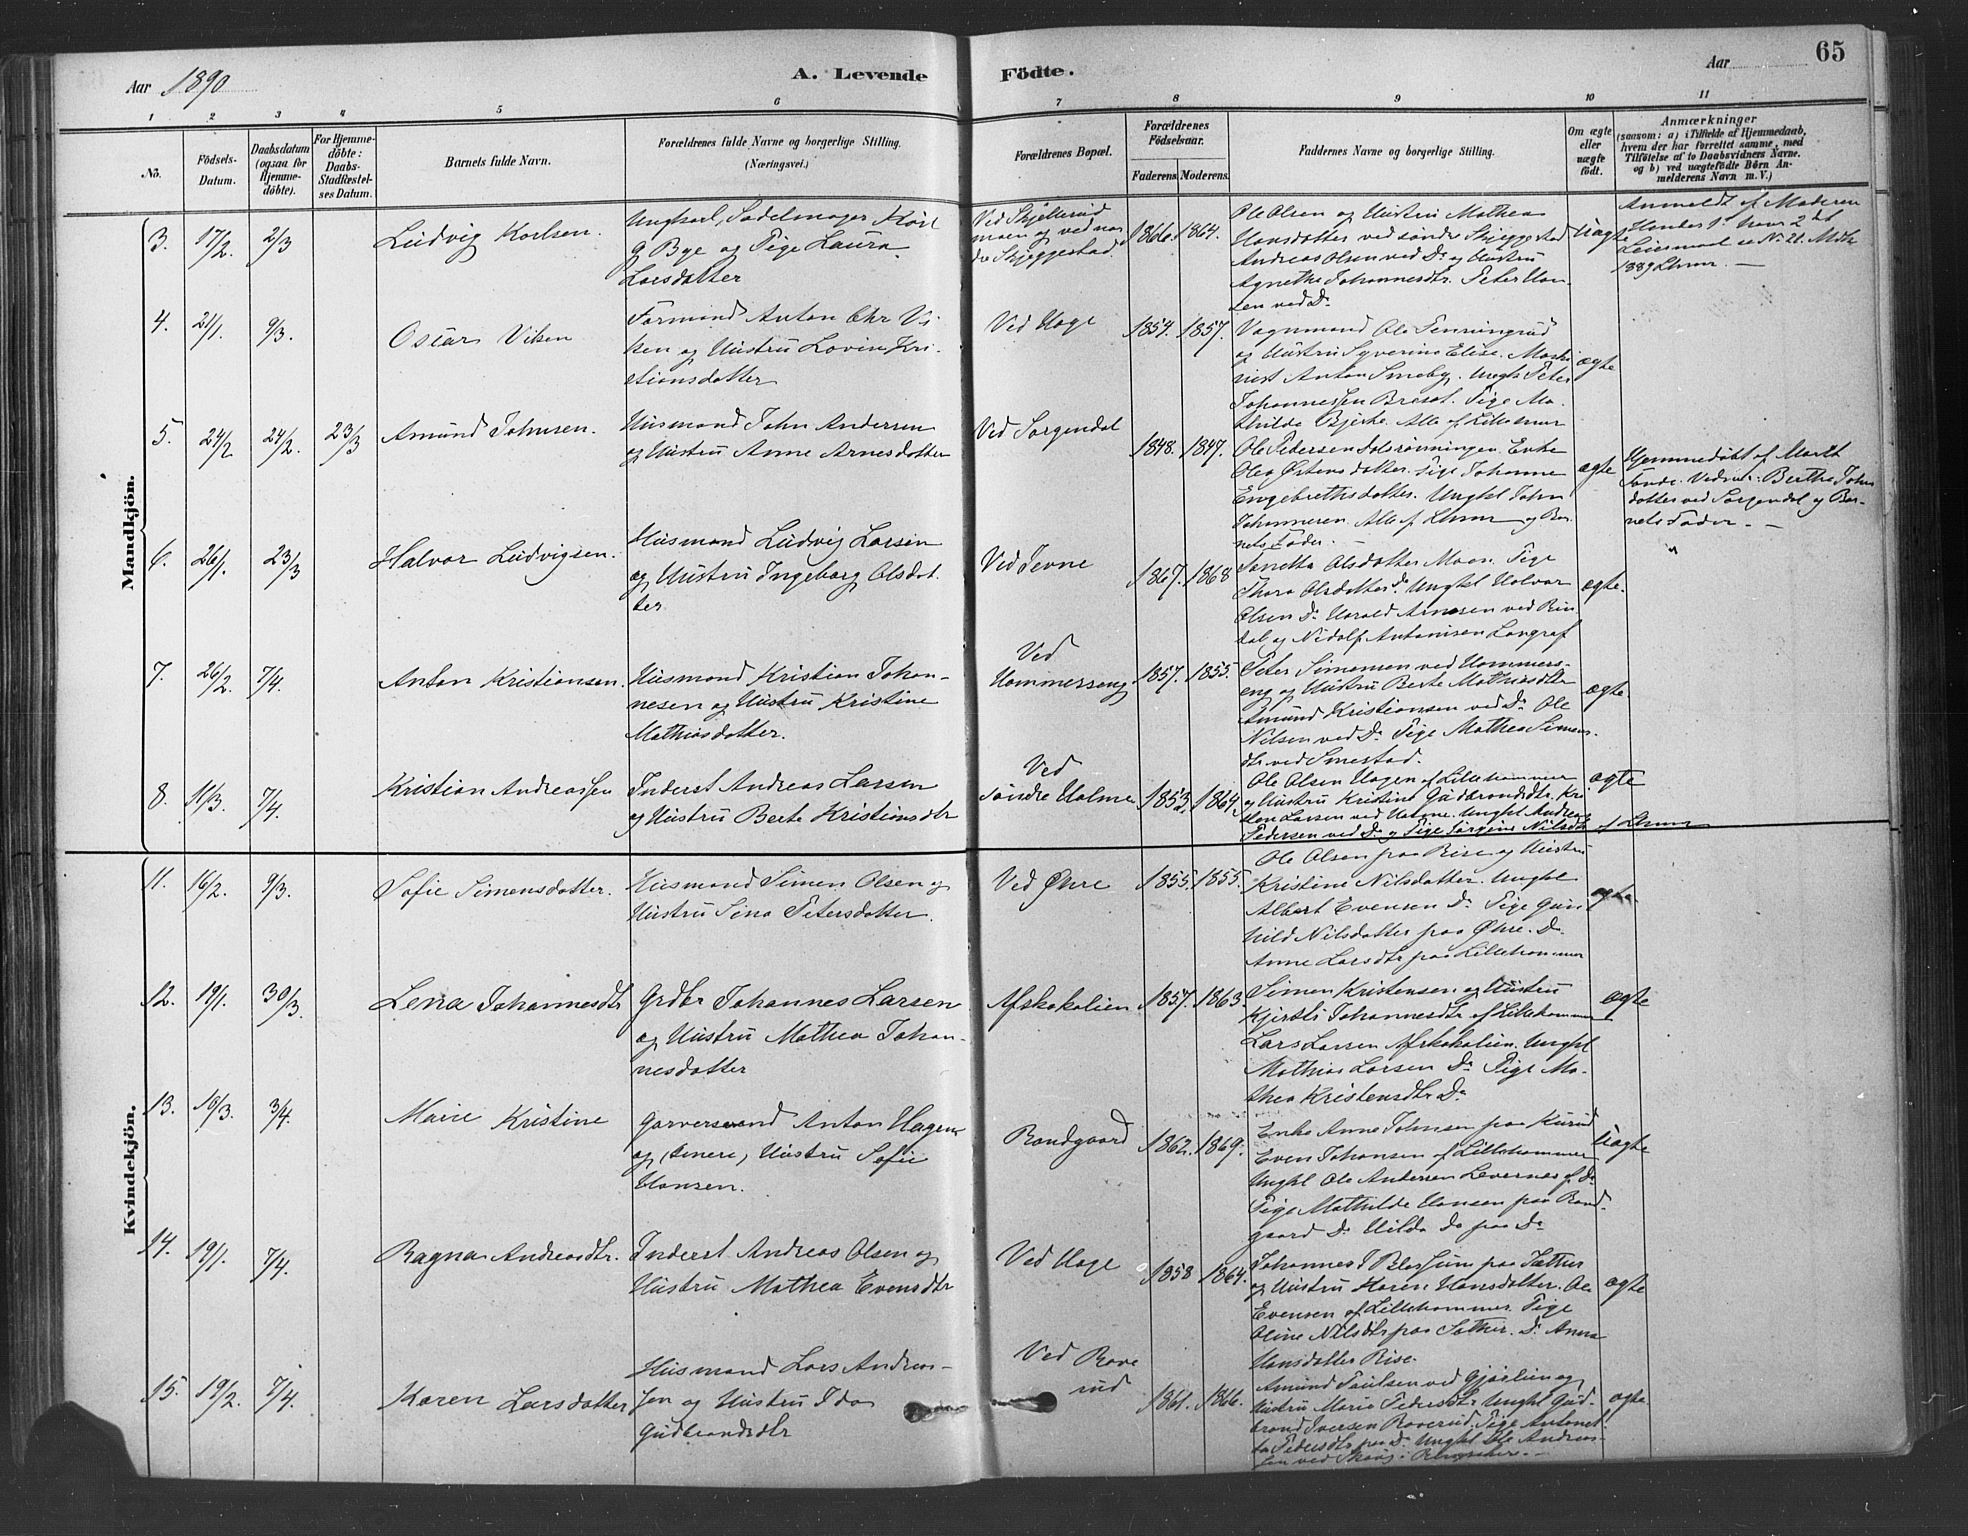 Aar 1890
A. Levende Födte.
Aar
65
1 2 3 4 5 6 7 8 9 10 11
No.
Födsels-Datum.
Daabsdatum (ogsaa for Hjemmedöbte).
For Hjemmedöbte: Daabs-Stadfæstelses Datum.
Barnets fulde Navn.
Forældrenes fulde Navne og borgerlige Stilling. (Næringsvei.)
Forældrenes Bopæl.
Forældrenes Födselsaar.
Faderens. Moderens.
Faddernes Navne og borgerlige Stilling.
Om ægte eller uægte födt.
Anmærkninger
(saasom: a) i Tilfælde af Hjemmedaab, hvem der har forrettet samme, med Tilföielse af to Daabsvidners Navne. og b) ved uægtefödte Börn Anmelderens Navn m. V.)
Mandkjön.
3. 17/2 2/3 Ludvig Karlsen.
Ungkarl, Sadelmager Karl
G Bye og Pige Laura
Larsdatter
Ved Skjellerud
moen og ved nør
dre Skjeggestad
1866. 1864.
Ole Olsen og Hustru Mathea
Hansdatter ved søndre Skjeggestad
Andreas Olsen ved Do og Hustru
Agnethe Johannesdtr. Peter Han-
sen ved Do
Uægte
Anmeldt af Moderen
Hendes 1st Hans 2det
Leiermaal se No 21. Mdk
1889 Lhmr. —
4. 21/1. 9/3. Oscar Viken
Formand Anton Chr Vi-
ken og Hustru Lovise Kri-
stiansdatter
Ved Hage
1854. 1857.
Vognmand Ole Tenningrud
og Hustru Syverine Elise. Maski
nist Anton Smeby. Ungk Peter
Johannessen Bræset. Pige Ma-
thilde Bjerke. Alle af Lillehammer
ægte
5. 24/2 24/2. 23/3 Amund Johnsen.
Husmand John Andersen
og Hustru Anne Arnesdatter
Ved Sorgendal
1848. 1847.
Ole Pedersen Enke
Olea Østensdatter. Pige Johanne
Engebrethsdatter. Unghl John
Johannesen. Alle af Lhmr og Bar-
nets Fader. —
ægte
Hjemmedøbt af Marit
Vedsrud. Berthe Johns
datter ved Sorgendal og Bar-
nets Fader. —
6. 26/1. 23/3 Halvor Ludvigsen.
Husmand Ludvig Larsen
og Hustru Ingeborg Olsdat-
ter
Ved Jevne
1867. 1868
Olsdatter Moen. Pige
Thora Olsdatter Do Unghl Halvor
Olsen Do Harald Arnesen ved Rin
dal og Nidolf Antonisen Langraf
ægte.
7. 26/2. 7/4. Anton Kristiansen.
Husmand Kristian Johan-
nesen og Hustru Kristine
Mathiasdatter.
Ved
Hammerseng
1857. 1855.
Peter Simensen ved Hammers-
eng og Hustru Berte Mathiasdtr
Amund Kristiansen ved Do Ole
Nilsen ved Do Pige Mathea Simens-
dtr ved Smestad.
ægte.
8. 11/3. 7/4 Kristian Andreassen
Inderst Andreas Larsen
og Hustru Berte Kristiansdtr
Ved
Søndre Holme
1853. 1864.
Ole Olsen Hagen af Lillehammer
og Hustru Kristine Gudbrandsdtr. Kri
stian Larsen ved Holme. Unghl Andreas
Pedersen ved Do og Pige Jørgine Nilsdtr af Lhmr
ægte
Kvindekjön.
11. 16/2. 9/3. Sofie Simensdatter.
Husmand Simen Olsen og
Hustru Sina Petersdatter.
Ved Øhre
1855. 1855.
Ole Olsen paa Rise og Hustru
Kristine Nilsdatter. Unghl
Albert Evensen Do Pige Gun
hild Nilsdatter paa Øhre. Do
Anne Larsdtr paa Lillehammer
ægte
12. 19/1. 30/3. Lena Johannesdtr
Grdbr Johannes Larsen
og Hustru Mathea Johan-
nesdatter
Afskakalien
1857. 1863.
Simen Kristensen og Hustru
Kjersti Johannesdtr af Lillehammer
Lars Larsen Afskakalien. Unghl
Mathias Larsen Do Pige Ma-
thea Kristensdtr Do
ægte
13. 16/3. 3/4. Marie Kristine
Garversvend Anton Hagen
og (senere) Hustru Sofie
Hansen.
Randgaard
1862. 1869.
Enke Anne Johnsen paa Kurud
Even Johansen af Lillehammer
Unghl Ole Andersen Levernæs af Do
Pige Mathilde Hansen paa Rand-
gaard Do Hilda Do paa Do
Uægte
14. 19/1. 7/4. Ragna Andreasdtr.
Inderst Andreas Olsen og
Hustru Mathea Evensdtr
Ved Hage
1858 1864.
Johannes J paa Sæther
og Hustru Karen Hansdatter. Ole
Evensen af Lillehammer. Pige
Oline Nilsdtr paa Sæther. Do Anna
Hansdatter Rise.
ægte
15. 19/2. 7/4. Karen Larsdatter
Husmand Lars Andreas-
sen og Hustru Ida
Gudbrandsdtr
Ved Rove
rud
1861. 1866.
Amund Paulsen ved Gjørlien og
Hustru Marie Pedersdtr Unghl Gud-
brand Iversen Roverud. Pige Antonet-
ta Pedersdtr paa Do Unghl Ole Andreas-
sen ved Skaug i Ringsaker. —
ægte